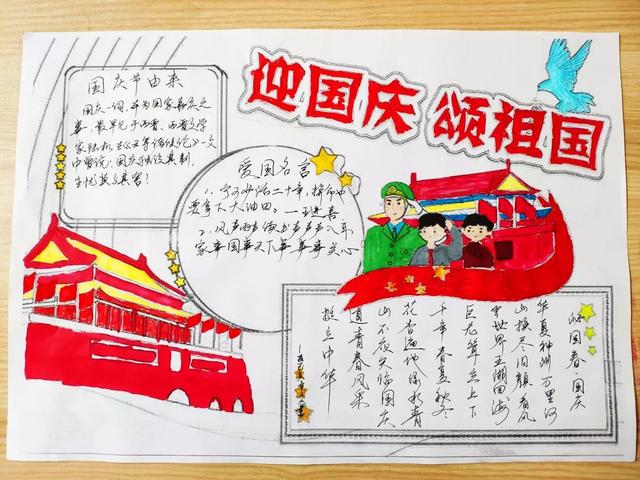 迎国庆 颂祖国
国庆节由来
国庆一词,本为国家喜庆之
事,最早见于西晋。西晋文学
家陆机在《五等诸侯论》一文
中曾说:国庆独飨其利,
主忧莫与其害!
爱国名言
1、宁可少活二十年,拼命也
要拿下大油田。—王进喜
2、风声雨声读书声声声入耳
家事国事天下事 事事关心
沁园春·国庆
华夏神州 万里河
山换尽旧颜 看风
世界五湖四海
巨龙耸立上下
千年春夏秋冬
花香遍地绿水青
山不夜天临国庆
道青春风采
挺立中华